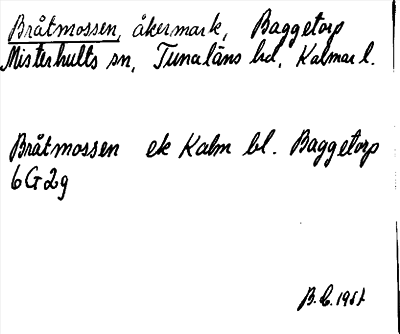 Bråtmossen, åkermark, Baggetorp
Misterhults sn, Tunaläns hd, Kalmar l.
Bråtmossen ek Kalm bl. Baggetorp
6G2g
B.C. 1951